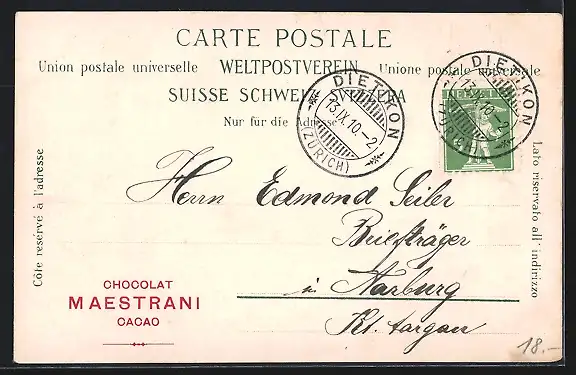 CARTE POSTALE
Union postale universelle WELTPOSTVEREIN Unione postale universale
SUISSE SCHWEIZ SVIZZERA
Nur für die Adresse
DIETIKON
13.IX.10.-2
(ZÜRICH)
DIETIKON
13.IX.10.-2
(ZÜRICH)
Côte réservé à l'adresse
Lato riservato all' indirizzo
Herrn Edmond Seiler
Briefträger
in Aarburg
Kt. Aargau
CHOCOLAT
MAESTRANI
CACAO
18.-